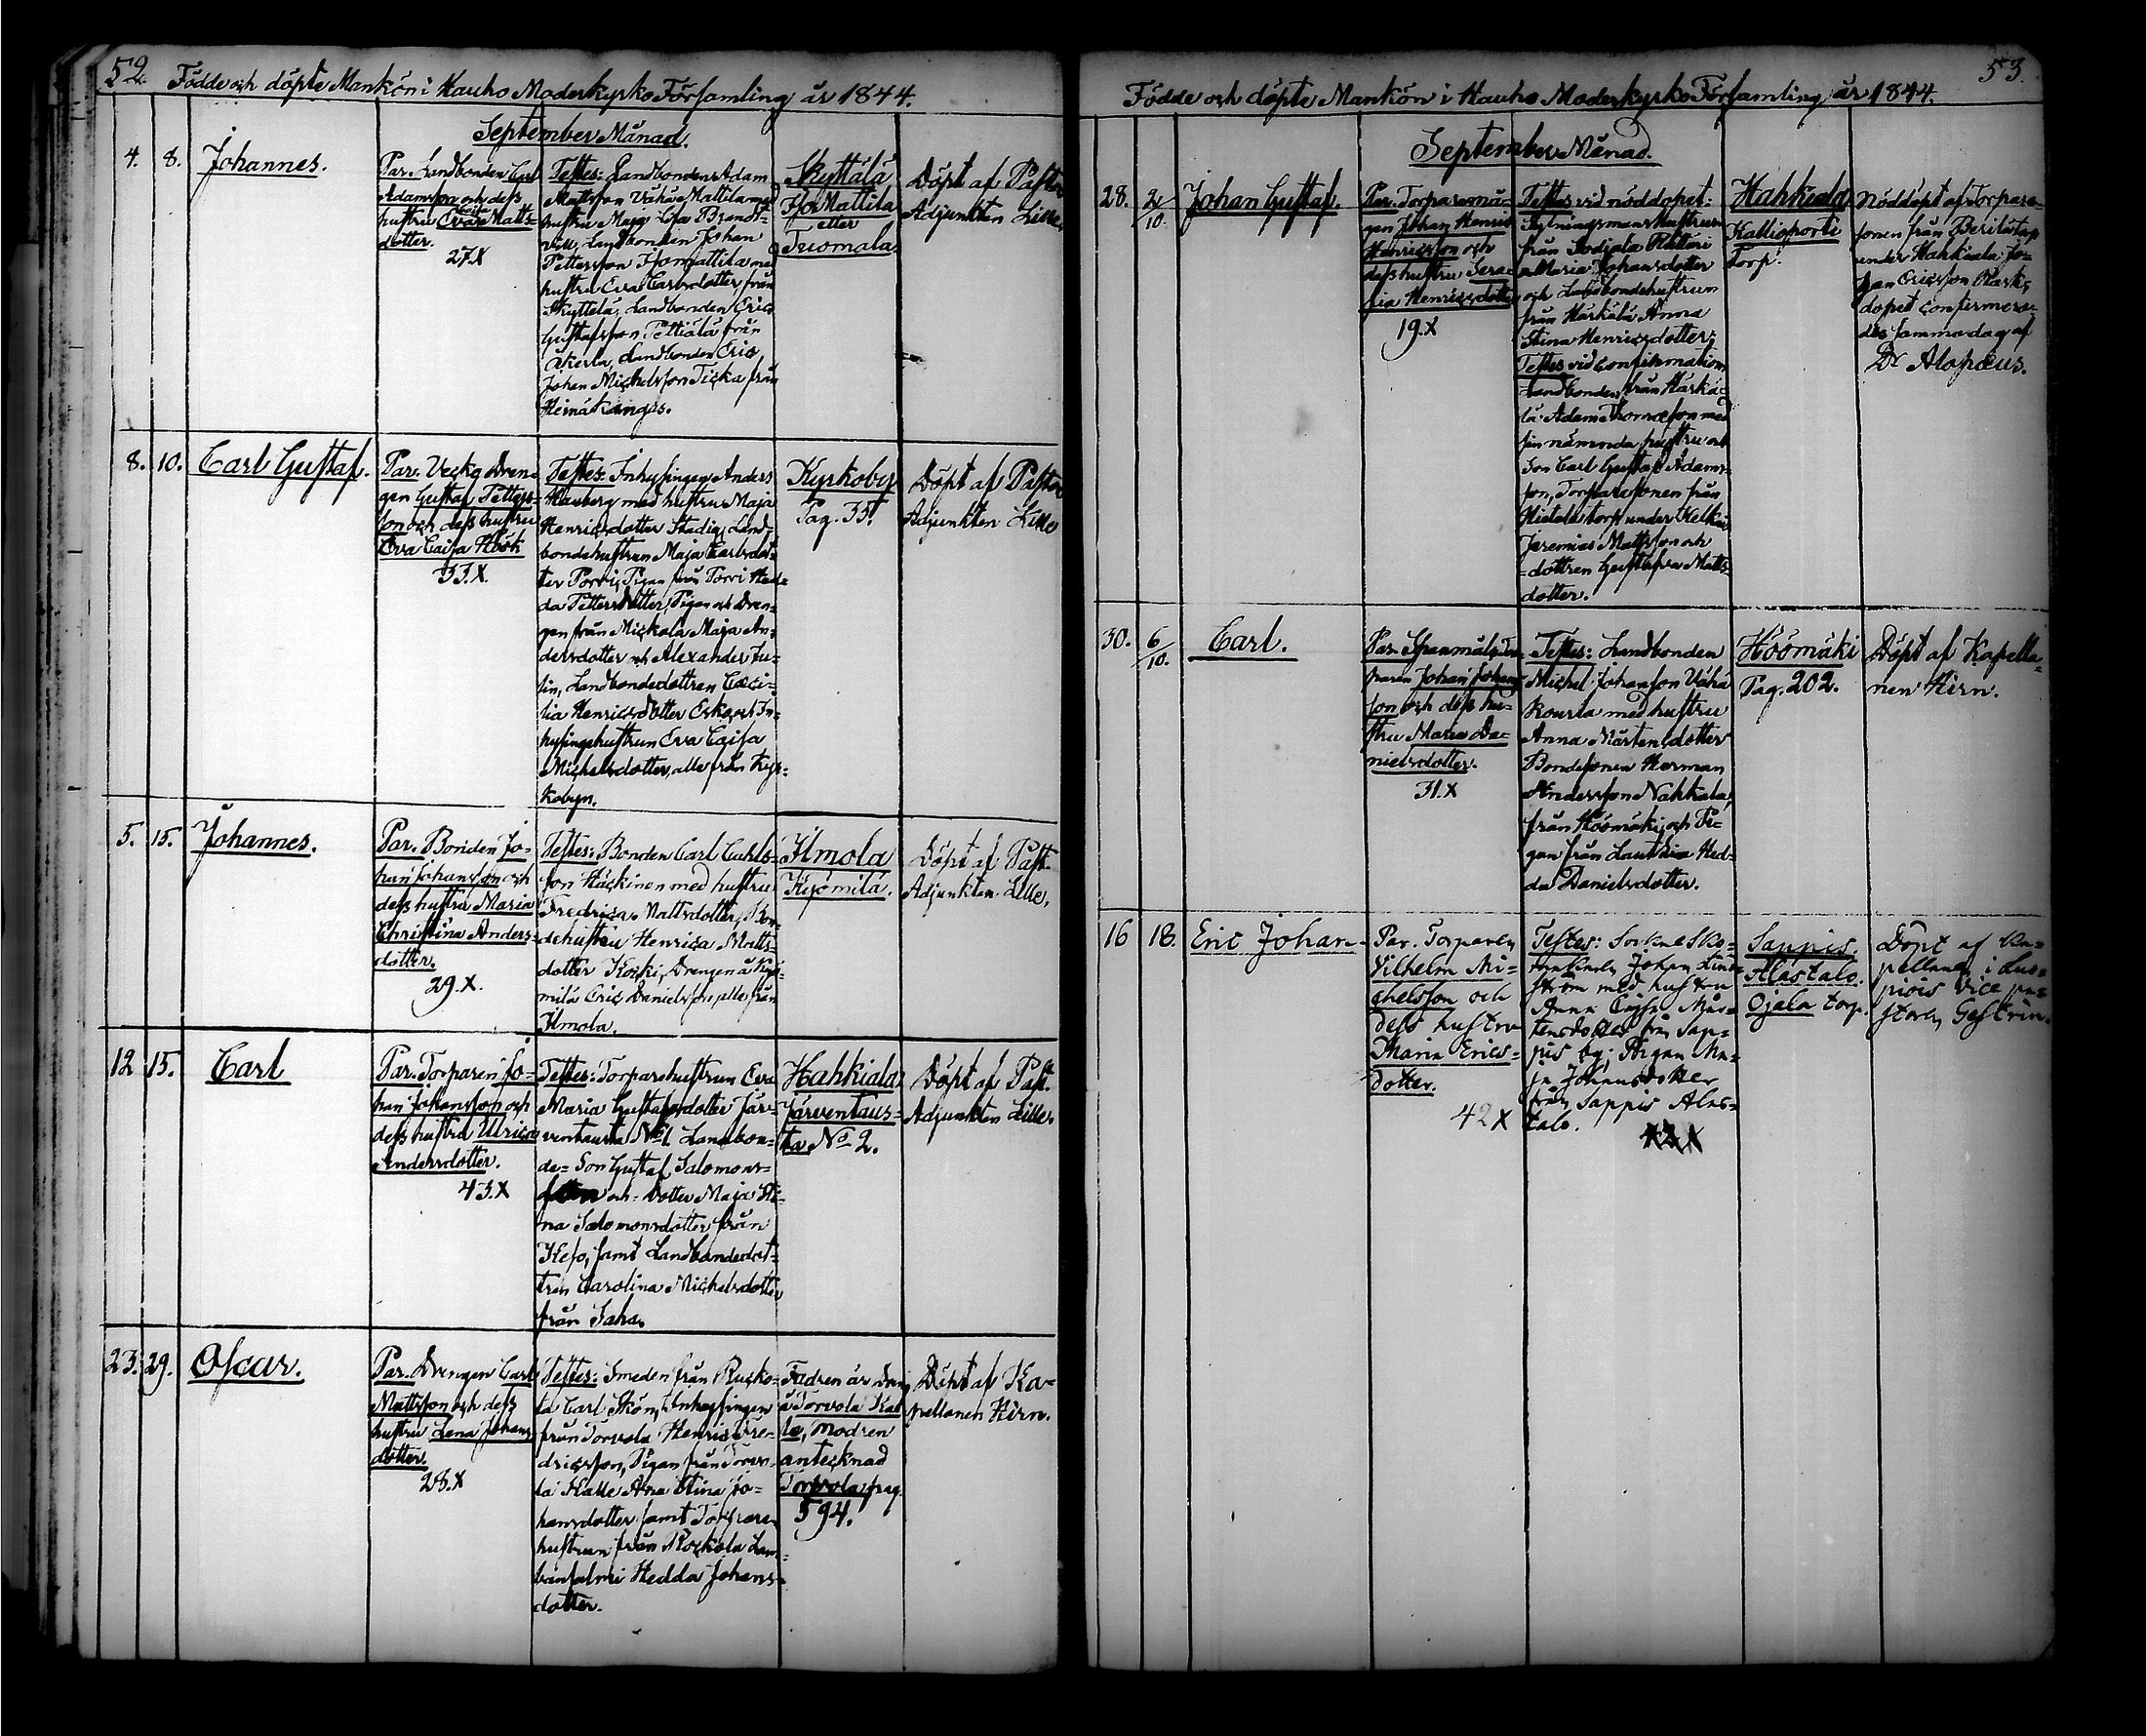 52.
Födde och döpte Mankön i Hauho Moderkyrko Församling år 1844.
September Månad.
4. 8. Johannes.
Par. Landbonden Carl
Adamsson och dess
hustru Eva Matts-
dotter.
27.X
Testes: Landbonden Adam
Mattsson Vähä Mattila med
hustru Maja Lisa
Landbonden Johan
Pettersson Isomattila med
hustru Eva Carlsdotter från
Skyttälä, Landbonden Eric
Gustafsson från
Åkerla, Landbonden Eric
Johan Michelsson Ticka från
Heinäkangas.
Skyttälä
Iso Mattila
eller
Tuomala.
Döpt af Pastors
Adjunkten Lilles
8. 10. Carl Gustaf.
Par. Drän-
gen Gustaf Petters-
son och dess hustru
Eva Caisa Höök
33.X.
Testes: Inhysingen Anders
Hauberg med hustru Maja
Henricsdotter Stadig, Land-
bondehustrun Maja Carlsdot-
ter Porri, Pigan från Porri Hed-
da Pettersdotter, Pigan och Dren-
gen från Mickola Maja An-
dersdotter och Alexander Ju-
lin, Landbondedottren Cæci-
lia Henricsdotter Erkas och In-
hysingehustrun Eva Caisa
Michelsdotter, alle från Kyr-
kobyn.
Kyrkoby
Pag. 35.
Döpt af Pastors
Adjunkten Lilles
5. 15. Johannes.
Par. Bonden Jo-
han Johansson och
dess hustru Maria
Christina Anders-
dotter.
29.X.
Testes: Bonden Carl Carls-
son Häckinen med hustru
Fredrica Mattsdotter, Bon-
dehustru Henrica Matts-
dotter Koski, Drengen å Kyö-
milä Eric Danielsson alle från
Ilmola.
Ilmola
Kyömilä.
Döpt af Past.
Adjunkten Lille.
12 15. Carl
Par. Torparen Jo-
han Johansson och
dess hustru Ulrica
Andersdotter.
43.X
Testes: Torparehustrun Eva
Maria Gustafsdotter Jär-
ventausta No 1, Landbon-
de- Son Gustaf Salomons-
son och- Dotter Maja Sti-
na Salomonsdotter från
samt Landbondedot-
tren Carolina Michelsdotter
från Saha.
Hahkiala
Järventaus-
ta No 2.
Döpt af Past.
Adjunkten Lilles
23. 29. Oscar.
Par. Drengen Carl
Mattsson och dess
hustru Lena Johans
dotter.
28.X
Testes: Smeden från Rucko-
la Carl Skön, Inhysingen
från Torvola Henric Fre-
dricsson, Pigan från Torvo-
la Kalle Ana Stina Jo-
hansdotter samt Torpare
hustrun från Rockola Lam-
binsalmi Hedda Johans-
dotter.
Fadren är Dreng
å Torvola Kal
le, modren
antecknad
Torvola pag.
594.
Döpt af Ka-
pellanen Hirn.
53.
Födde och döpte Mankön i Hauho Moderkyrko Församling år 1844.
September Månad.
28. 2/10 Johan Gustaf.
Par. Torparemå-
gen Johan Henric
Henricsson och
dess hustru Sera-
fia Henricsdotter
19.X
Testes vid nöddopet:
Rytningsmans Hustrun
från Sodjala Rattori
Maria Johansdotter
och Landbondehustrun
från Härkälä Anna
Stina Henricsdotter;
Testes vid confirmation
Landbonden från Härkä-
lä Adam Thomasson med
sin nämnda hustru och
Son Carl Gustaf Adams-
son, Torparesonen från
Hietala torp under
Jeremias Mattsson och
-dottren Gustafva Matts-
dotter.
Hahkiala
Kallioportti
Torp.
Nöddöpt af Torpare-
sonen från
under Hahkiala Jo-
han Ericsson
dopet confirmera-
des samma dag af
Dr Alopæus.
30. 6/10. Carl.
Par. Spanmåls Tor-
paren Johan Johans-
son och dess hu-
stru Maria Da-
nielsdotter.
31.X
Testes: Landbonden
Michel Johansson Vähä
Rourla med hustru
Anna Mårtensdotter
Bondesonen Herman
Andersson Nahkala,
från Höömäki, och Pi-
gan från Lautsia Hed-
da Danielsdotter.
Höömäki
Pag. 202.
Döpt af Kapella-
nen Hirn.
16 18. Eric Johan.
Par. Torparen
Vilhelm Mi-
chelsson och
dess hustru
Maria Erics-
dotter.
42 X
Testes: Sockne Sko-
makaren Johan Lind-
ström med hustru
Anna Caisa Mår-
tensdotter från Sap-
pis by; Pigan Ma-
ja Johansdotter
från Sappis Alas-
talo.
Sappis.
Alastalo.
Ojala torp.
Döpt af Ka-
pellanen i Luo-
piois vice pa-
storn Gestrin.